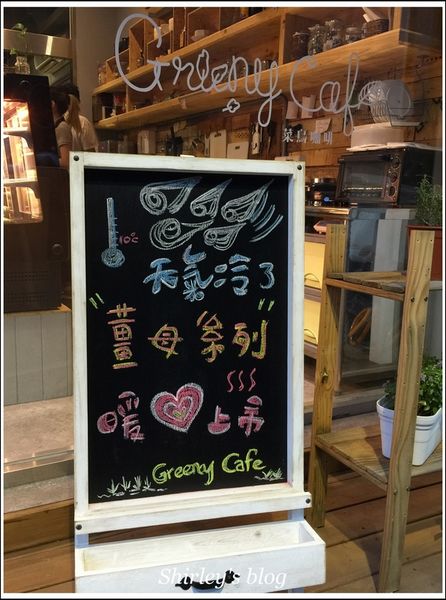 Greeny Cafe
菓島咖啡
10°C
天氣冷了
"薑母系列"
暖♡上市
Greeny Cafe
Shirley's blog